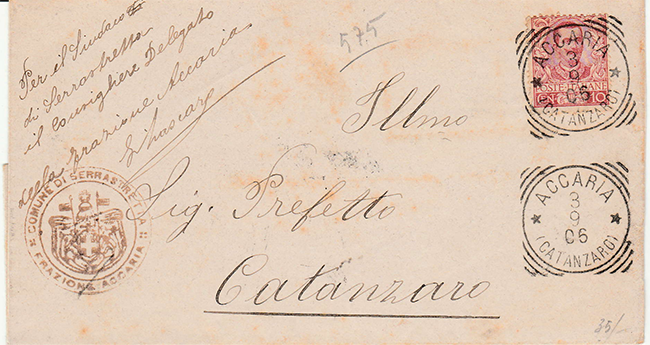 Per il Sindaco
di Serrastretta
il consigliere Delegato
della frazione Accaria
575
POSTE ITALIANE
10
ACCARIA
3
9
06
(CATANZARO)
Illmo
COMUNE DI SERRASTRETTA
FRAZIONE ACCARIA
Sig. Prefetto
Catanzaro
ACCARIA
3
9
06
(CATANZARO)
35/